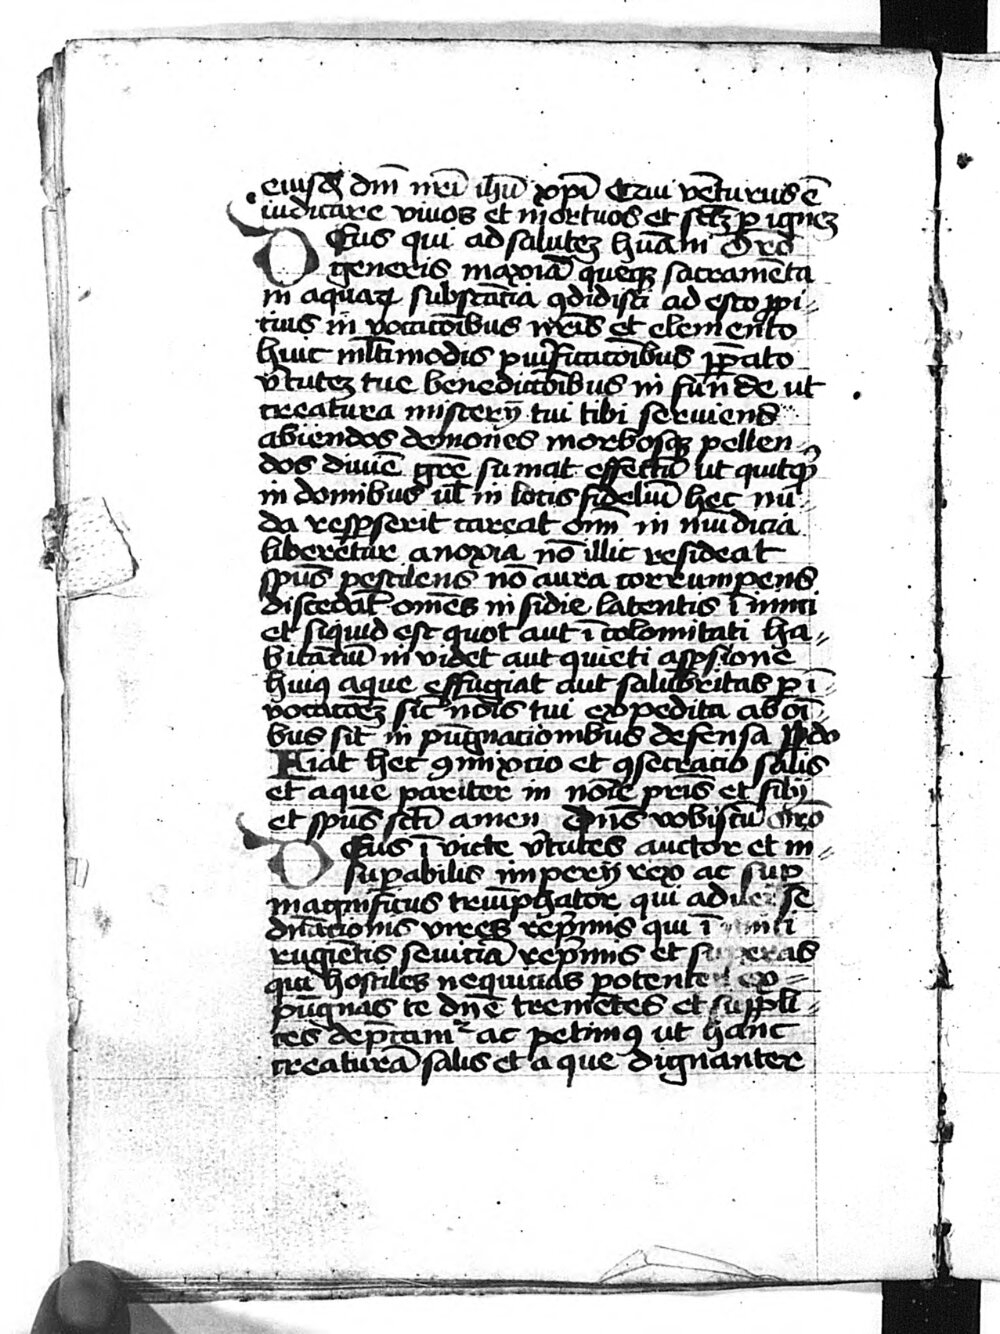 eiusdē dnī nrī ihū xpī Qui vēturus ē
iudicare vivos et mortuos et sclm p ignez
Deus qui ad salutez hūani Oro
generis maxiā queqz sacramēta
in aquaꝝ substātia ꝯdidisti ad esto ꝓpi⸗
tius in vocatōibus nrīs et elemento
huic mltimodis puificatōibus p̄pato
vtutez tue benedictōibus in funde ut
creatura misterij tui tibi serviens
abiendos demones morbosqz pellen⸗
dos divīē grē sumat effectū ut quitqͥd
in domibus ul in locis fideliū hec un⸗
da resꝑserit careat omī in mudicia
liberetur a noxia nō illic resideat
spūs pestilens nō aura corrumpens
discedāt omēs in sidie latentis īimici
et siquid est quot aut ī colomitati ha⸗
bitātiū in videt aut quieti aspsione
huiꝯ aque effugiat aut salubritas p ī
vocatōez sīc nōis tui expedita ab oī⸗
bus sit in pūgnacionibus defensa p do
Fiat hec ꝯmixtio et ꝯsecracio salis
et aque pariter in nōīe pris et filij
et spūs scti amen Dns vobiscū Oro
Deus īvicte vtutes auctor et in⸗
supabilis imperij rex ac sup
magnificus triūphator qui adverse
dnacionis vires repmis qui īimici
rugiētis seviciā repmis et superas
qui hostiles nequicias potenter ex⸗
pūgnas te dnē tremētes et suppli⸗
ces depcamᷣ ac petimꝯ ut hanc
creaturā salis et a que dignanter